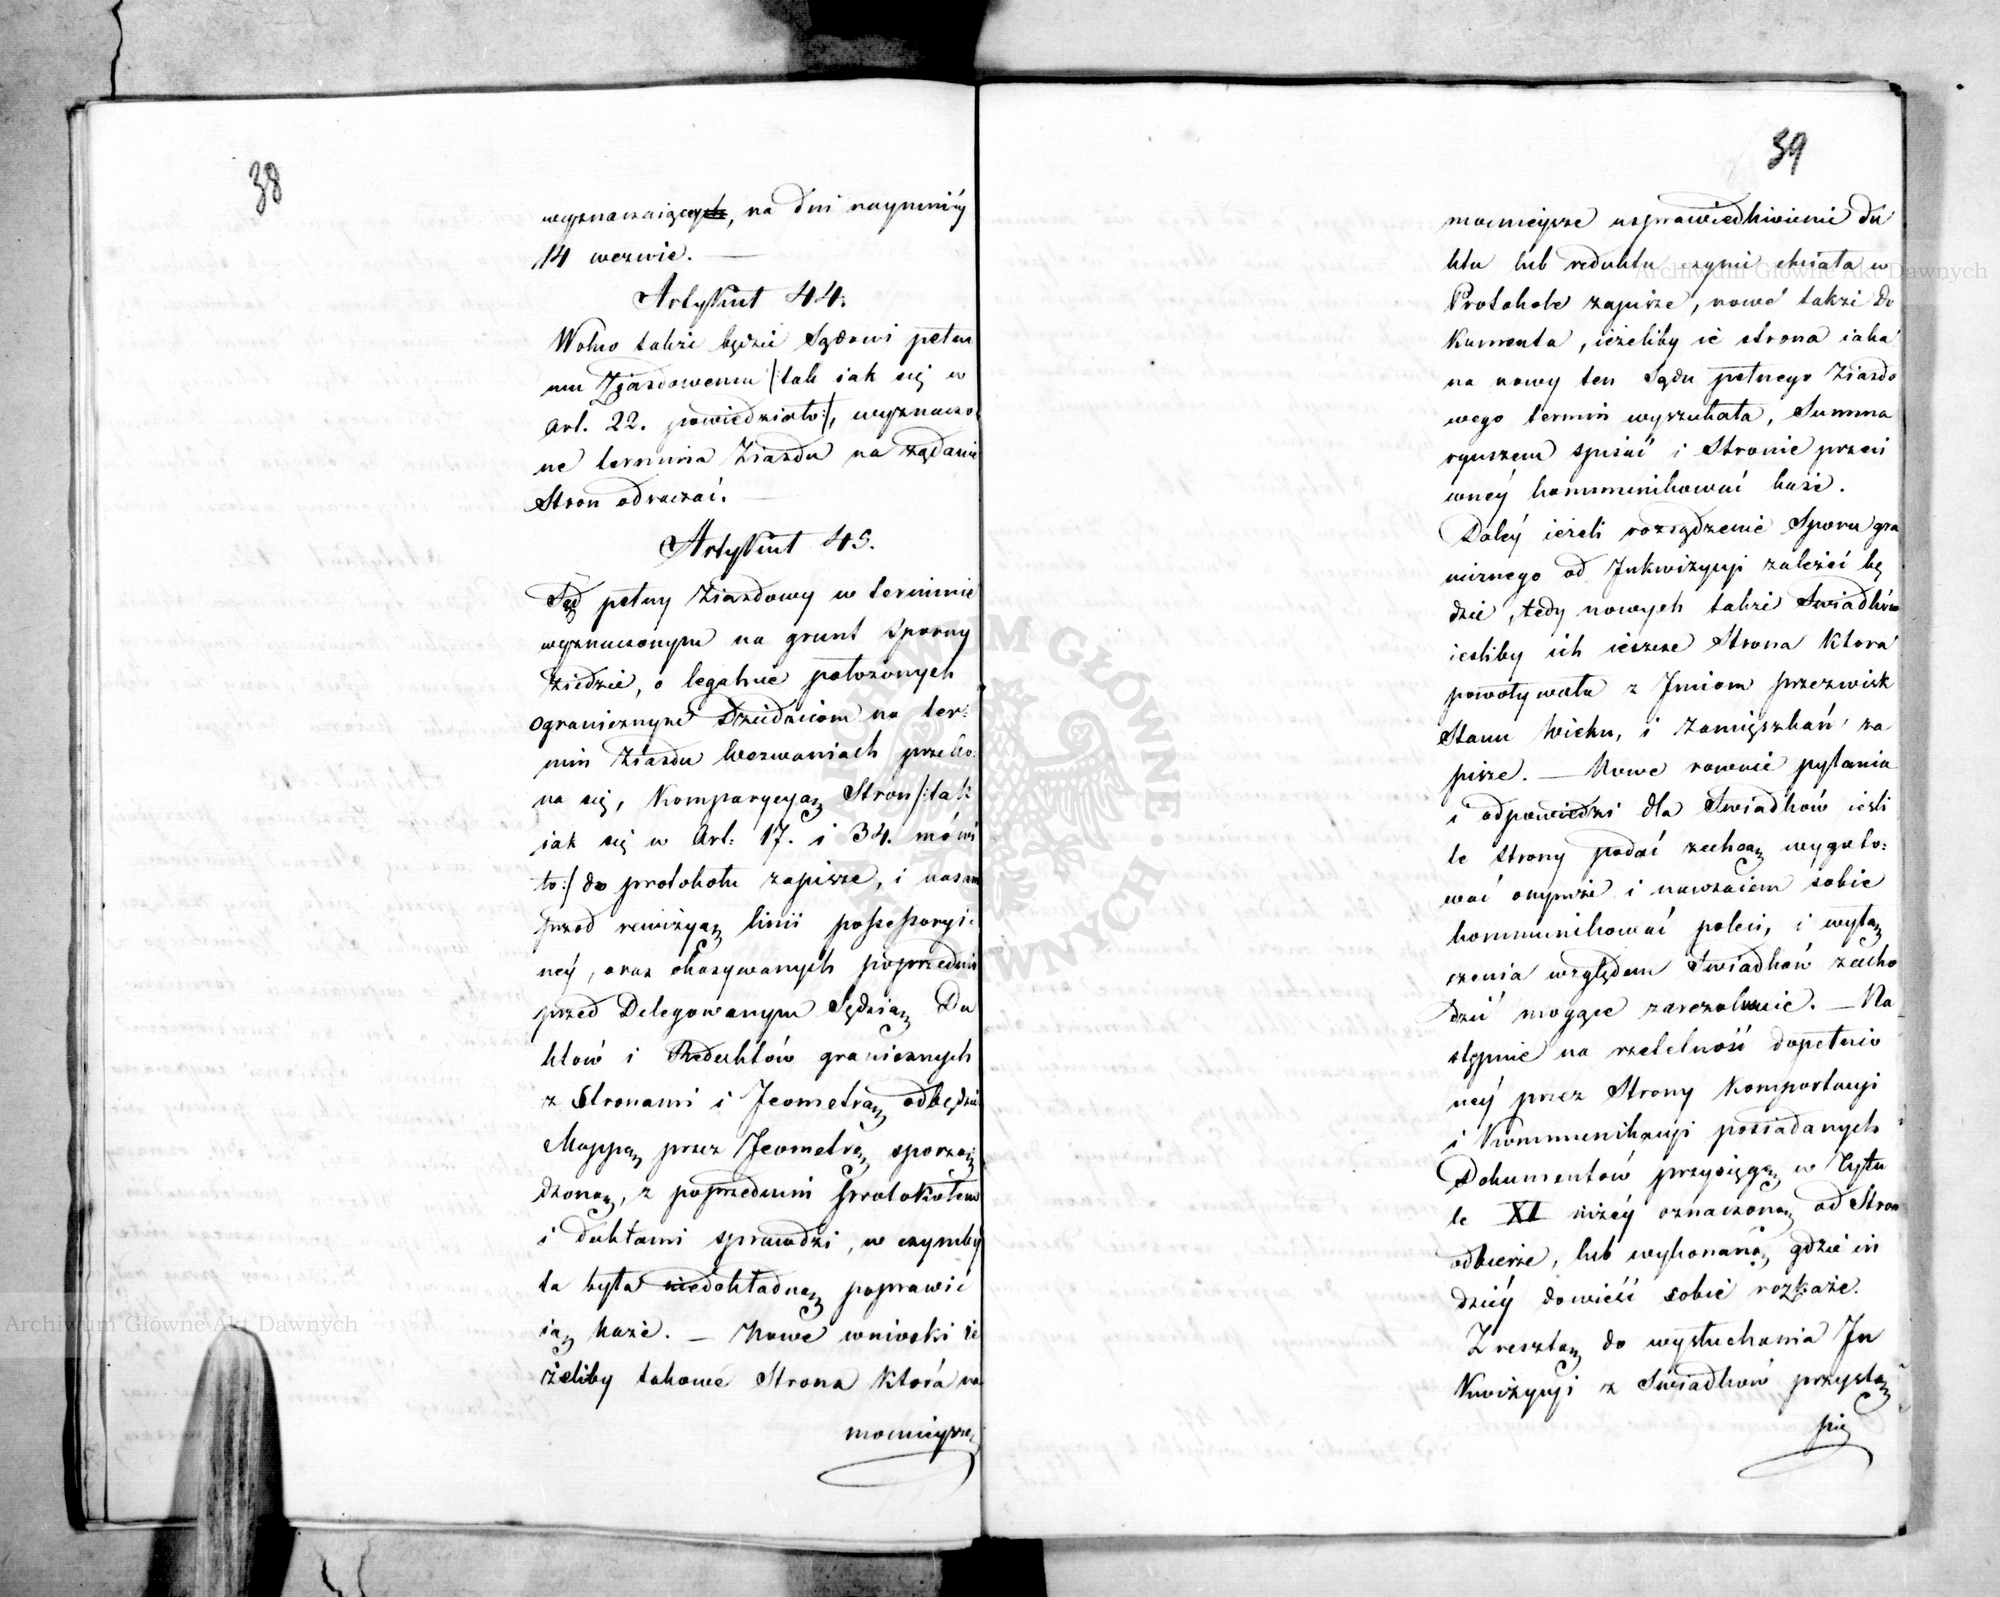 38
wyznaczaiący, na dni naymniéy
14 wezwie. —
Artykuł 44.
Wolno także będzie Sądowi pełne
mu Zjazdowemu /:tak iak się w
Art. 22. powiedziało:/, wyznaczo
ne termina Ziazdu na żądanie
Stron odraczać. —
Artykuł 45.
Sąd pełny Ziazdowy w terminie
wyznaczonym na grunt sporny
ziedzie, o legalnie położonych
ogranicznym Dziedzicom na ter:
min Ziazdu Wezwaniach przeko:
na się, Komparycyą Stron /:tak
iak się w Art: 17. i 34. mówi
ło:/ do protokołu zapisze, i nasam
przod rewizyą linii possessoryi:
néy, oraz okazywanych poprzednio
przed Delegowanym Sędzią Du
któw i Reduktów granicznych
z Stronami i Jeometrą odbędzie
Mappę przez Jeometrę sporzą
dzoną, z poprzednim protokółem
i duktami sprawdzi, w czymby
ta była niedokładną poprawić
ią każe. — Nowe wnioski ie
żeliby takowé Strona która na
mocnieysze
39
mocnieysze usprawiedliwienie du
ktu lub reduktu czynić chciała w
Protokole zapisze, nowé także do
kumenta, ieżeliby ie strona iaka
na nowy ten Sądu pełnego Ziazdo
wego termin wyszukała, Summa
ryuszem spisać i Stronie przeci
wnéy kommunikować każe.
Daléy ieżeli rozsądzenie Sporu gra
nicznego od Inkwizycyi zależeć bę
dzie, tedy nowych także Swiadków
iesliby ich ieszcze Strona Ktora
powoływała z Jmion przezwisk
Stanu Wieku, i Zamięszkań za
pisze. — Nowe rownie pytania
i odpowiedzi dla Swiadków iesli
te strony podać zechcą wygoto:
wać onymże i nawzaiem sobie
kommunikować poleci, i wyłą
czenia względem Swiadków zacho
dzić mogące zarezolwuie. — Na
stępnie na rzetelność dopełnio
néy przez Strony Komportacyi
i Kommunikacyi posiadanych
Dokumentów przysięgę w Tytu
le XI niżéy oznaczoną od Stron
odbierze, lub wykonaną gdzie in
dziéy dowieść sobie rozkaże.
Z resztą do wysłuchania In
Kwizycyi z Swiadków przystą
pię
ARCHIWUM GŁÓWNE AKT DAWNYCH
Archiwum Główne Akt Dawnych
Archiwum Główne Akt Dawnych